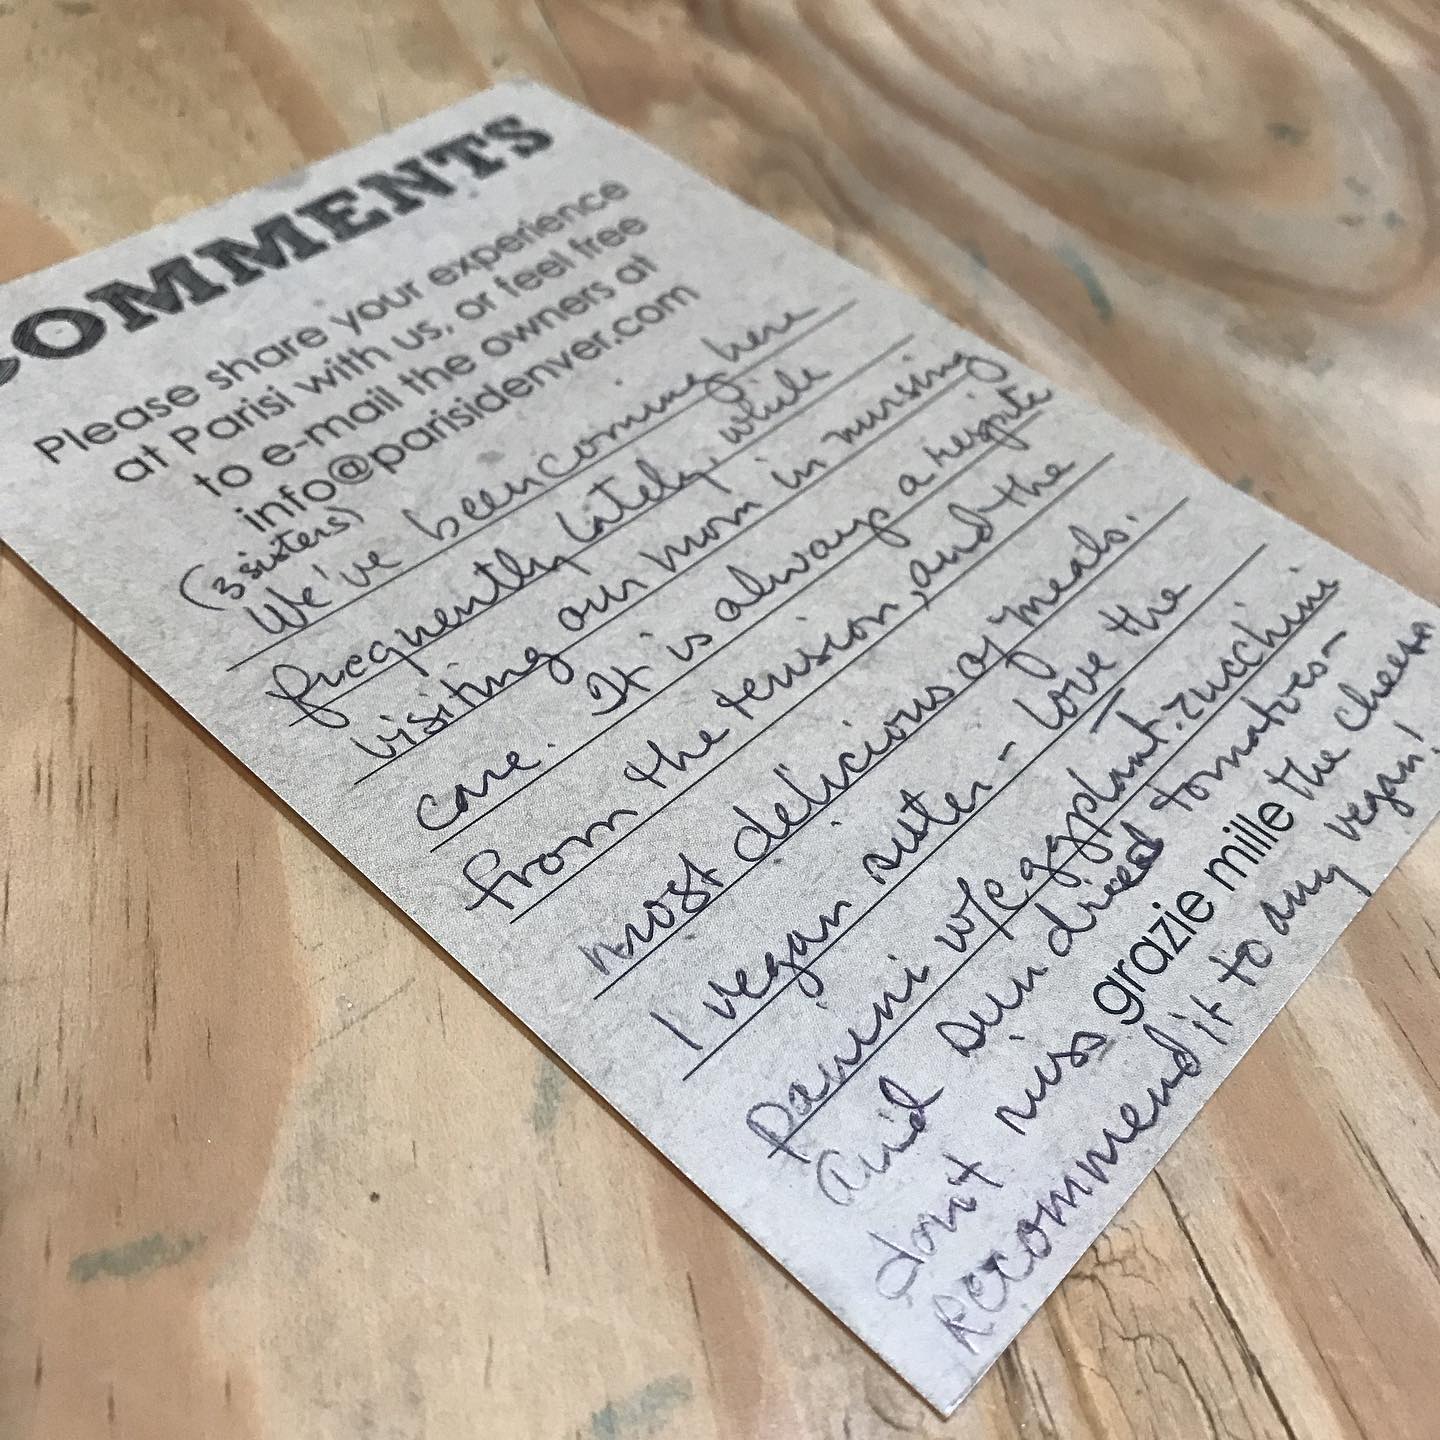 COMMENTS
Please share your experience
at Parisi with us, or feel free
to e-mail the owners at
info@parisidenver.com
(3 sisters)
We've been coming here
frequently lately, while
visiting our mom in nursing
care. It is always a respite
from the tension, and the
most delicious of meals.
1 vegan sister - love the
panini w/eggplant. zucchini
and sun dried tomatoes-
don't miss the cheese
grazie mille
Recommend it to any vegan!